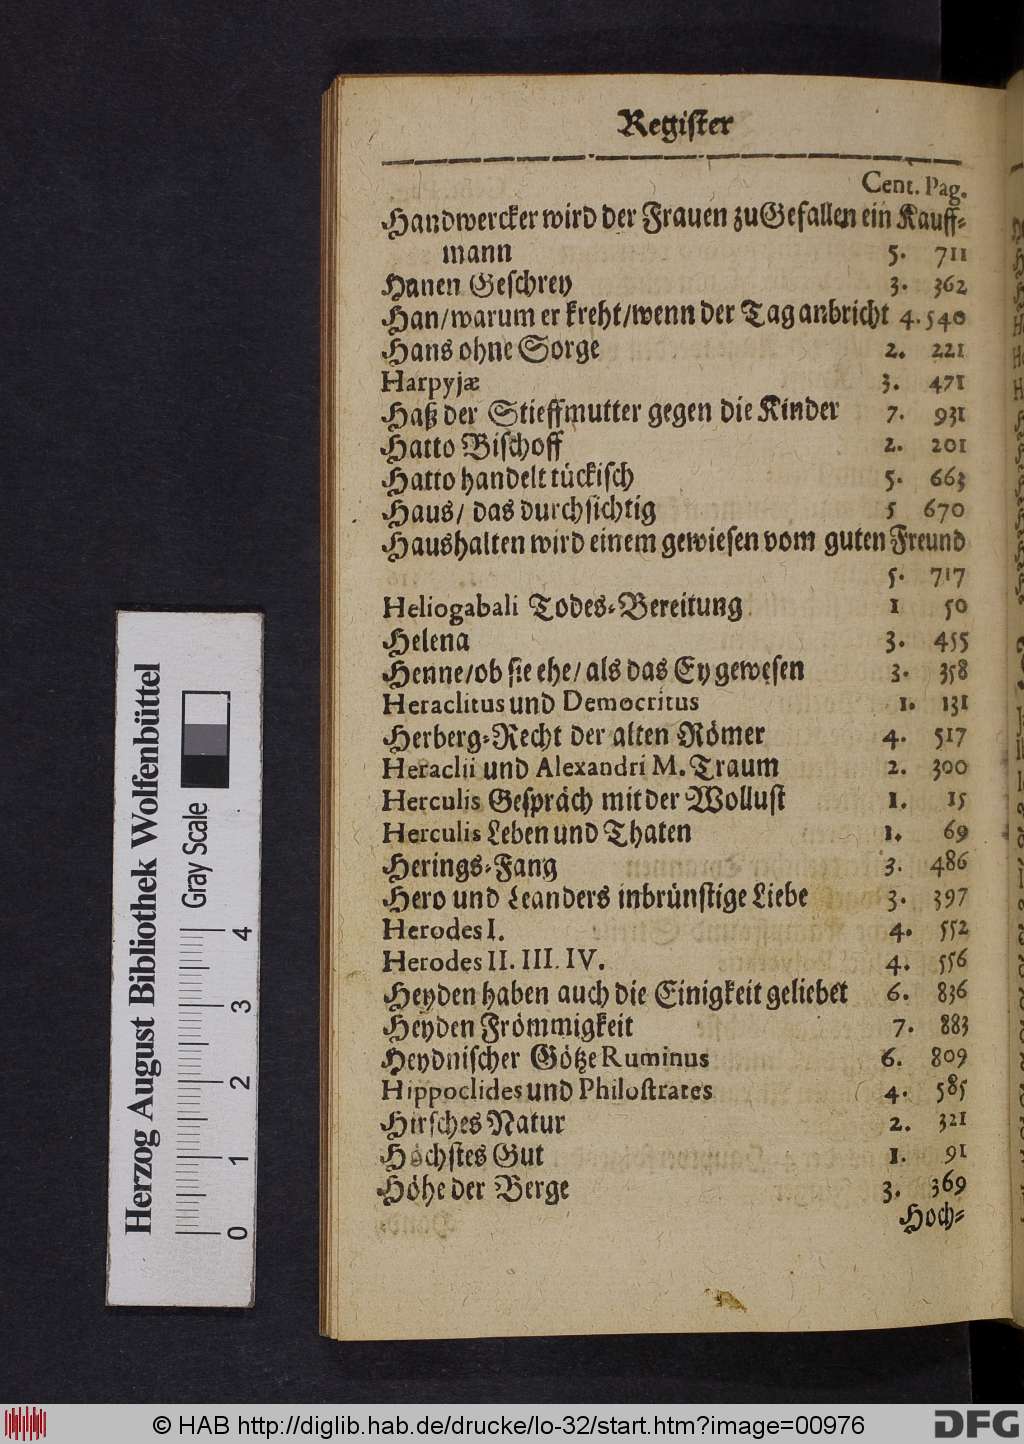 Register
Cent. Pag.
Handwercker wird der Frauen zu Gefallen ein Kauff-
mann 5. 711
Hanen Geschrey 3. 362
Han/warum er kreht/wenn der Tag anbricht 4. 540
Hans ohne Sorge 2. 221
Harpyjæ 3. 471
Haß der Stieffmutter gegen die Kinder 7. 931
Hatto Bischoff 2. 201
Hatto handelt tückisch 5. 663
Haus/ das durchsichtig 5 670
Haushalten wird einem gewiesen vom guten Freund
5. 717
Heliogabali Todes-Bereitung 1 50
Helena 3. 455
Henne/ob sie ehe/ als das Ey gewesen 3. 358
Heraclitus und Democritus 1. 131
Herberg-Recht der alten Römer 4. 517
Heraclii und Alexandri M. Traum 2. 300
Herculis Gespräch mit der Wollust 1. 15
Herculis Leben und Thaten 1. 69
Herings-Fang 3. 486
Hero und Leanders inbrünstige Liebe 3. 397
Herodes I. 4. 552
Herodes II. III. IV. 4. 556
Heyden haben auch die Einigkeit geliebet 6. 836
Heyden Frömmigkeit 7. 883
Heydnischer Götze Ruminus 6. 809
Hippoclides und Philostrates 4. 585
Hirsches Natur 2. 321
Höchstes Gut 1. 91
Höhe der Berge 3. 369
Hoch-
Herzog August Bibliothek Wolfenbüttel
Gray Scale
0 1 2 3 4
© HAB http://diglib.hab.de/drucke/lo-32/start.htm?image=00976
DFG